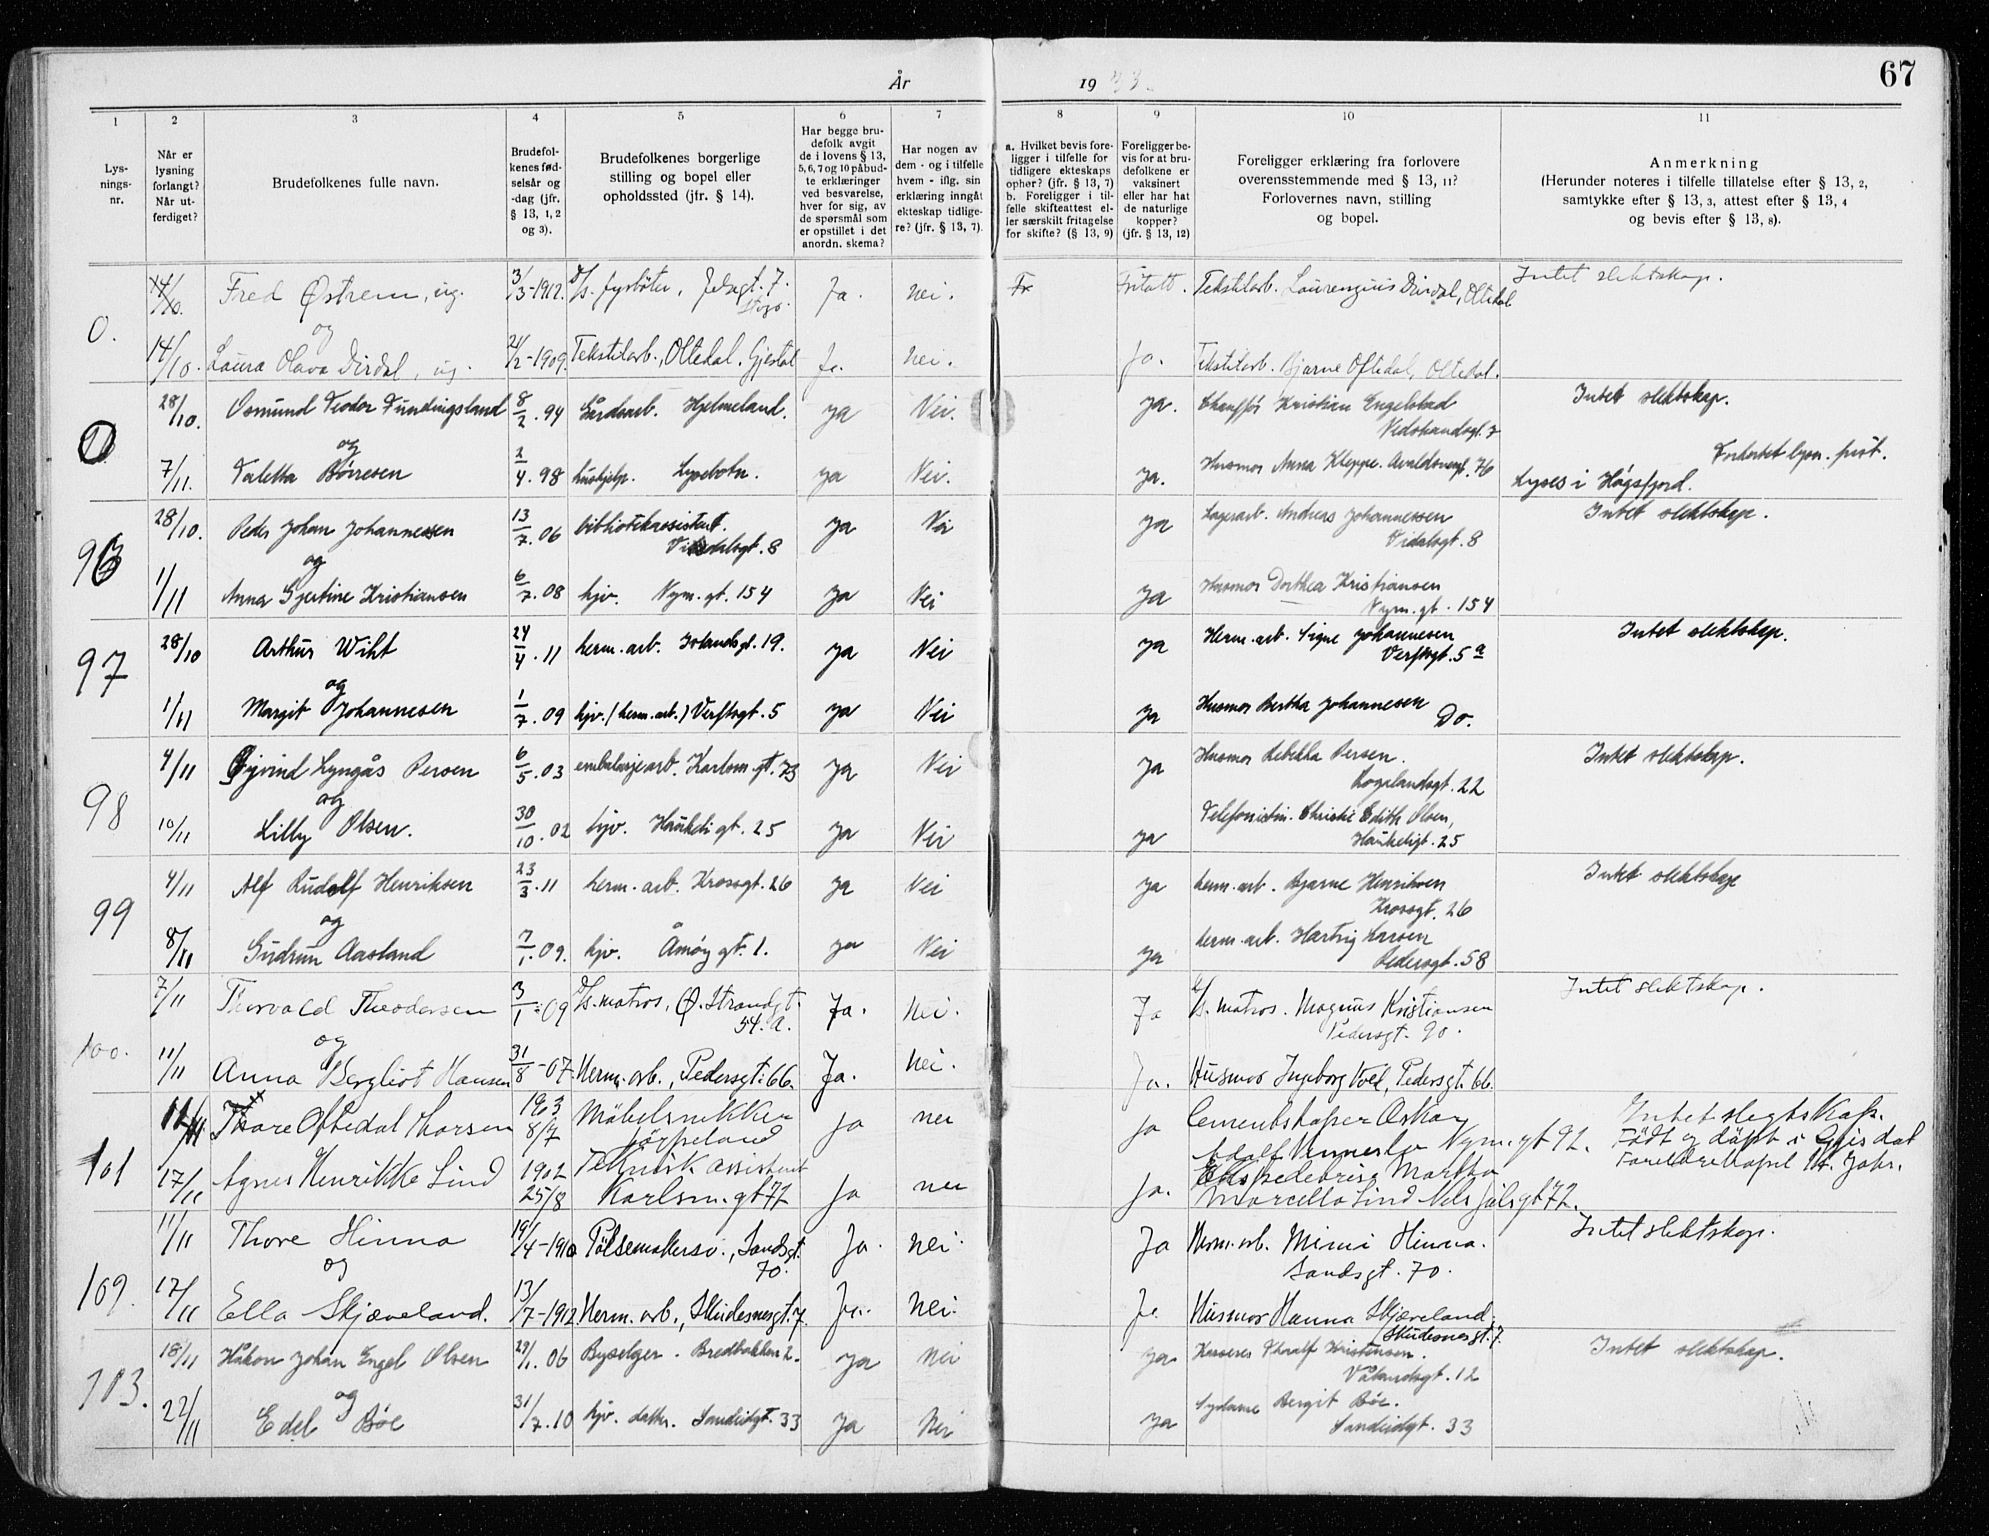 67
År 19 33.
1 2 3 4 5 6 7 8 9 10 11
Lysnings-nr.
Når er lysning forlangt? Når utferdiget?
Brudefolkenes fulle navn.
Brudefolkenes fødselsår og -dag (jfr. § 13, 1, 2 og 3).
Brudefolkenes borgerlige stilling og bopel eller opholdssted (jfr. § 14).
Har begge brudefolk avgit de i lovens § 13, 5, 6, 7 og 10 påbudte erklæringer ved besvarelse, hver for sig, av de spørsmål som er opstillet i det anordn. skema?
Har nogen av dem - og i tilfelle hvem - iflg. sin erklæring inngåt ekteskap tidligere? (jfr. § 13, 7).
a. Hvilket bevis foreligger i tilfelle for tidligere ekteskaps ophør? (jfr. § 13, 7) b. Foreligger i tilfelle skifteattest eller særskilt fritagelse for skifte? (§ 13, 9)
Foreligger bevis for at brudefolkene er vaksinert eller har hat de naturlige kopper? (jfr. § 13, 12)
Foreligger erklæring fra forlovere overensstemmende med § 13, 11? Forlovernes navn, stilling og bopel.
Anmerkning (Herunder noteres i tilfelle tillatelse efter § 13, 2, samtykke efter § 13, 3, attest efter § 13, 4 og bevis efter § 13, 8).
0. 14/10. Fred Østrem, ug. 3/3-1912. d/s. fyrbøter, 7. Ja. Nei. Fr Fritatt. Tekstilarb. Laurenzius Dirdal, Oltedal Intet slektskap.
og
14/10. Laura Olava Dirdal, ug. 24/2-1909. Tekstilarb., Oltedal, Gjestal Ja. Nei. Ja. Tekstilarb. Bjarne Oftedal, Oltedal.
0 28/10. Osmund Teodor Fundingsland 8/2. 94 Gårdsarb. Hjelmeland. ja Nei. ja. Chauffør Kristian Engelstad Intet slektskap.
og
7/11. Taletta Børresen 2/4. 98 hushjelp. Lysebotn. ja Nei. ja. Husmor Anna Kleppe. Avaldsnesgt. 76 Lyses i Høgsfjord.
96 28/10. Peder Johan Johannessen 13/7. 06 biblioteksassistent. Vidalsgt. 8 ja Nei ja Lagerarb. Andreas Johannessen Vidalsgt. 8 Intet slektskap.
og
1/11 Anna Gjertine Kristiansen 6/7. 08 hjv. Nym. gt. 154 ja Nei ja Husmor Dorthea Kristiansen Nym. gt. 154
97 28/10 Arthur Wiht 24/4. 11 herm. arb. 19. ja Nei ja Herm. arb. Signe Johannesen Verftsgt. 5 a Intet slektskap.
og
1/11 Margit Johannesen 1/7. 09 hjv. (herm. arb.) Verftsgt. 5 ja Nei ja Husmor Bertha Johannesen Do.
98 4/11 Øyvind Lyngås Persen 6/5. 03 embalasjearb. Karlsm. gt. 73 ja Nei ja Husmor Rebekka Persen. Rogalandsgt. 22 Intet slektskap.
og
10/11 Lilly Olsen. 30/10. 02 hjv. Haukeligt. 25 ja Nei ja Telefonistin. Christie Edith Olsen, Haukeligt. 25
99 4/11 Alf Rudolf Henriksen 23/3. 11 herm. arb. Krossgt. 26 ja Nei ja herm. arb. Bjarne Henriksen Krossgt. 26 Intet slektskap
og
8/11 Gudrun Aasland 7/1. 09. hjv. Åmøy gt. 1. ja Nei ja herm. arb. Hartvig Larsen Pedersgt. 58
100. 7/11 Thorvald Theodorsen 3/1-09 d/s. matros, Ø. Strandgt. 54. a. Ja. Nei. Ja d/s. matros. Magnus Kristiansen Pedersgt. 90. Intet slektskap.
og
11/11 Anna Bergliot Hansen 31/8-07. Herm. arb., Pedersgt. 66. Ja. Nei. Ja. Husmor Ingeborg Voll, Pedersgt. 66.
101 11/11 Thore Oftedal Thorsen 1903 8/7 Møbelsnekker Jørpeland Ja nei ja Cementstøper Oskar Adolf Nym. gt 92. Intet slegtskap. Født og døpt i Gjesdal
17/11 Agnes Henrikke Lind 1902 25/8 Teknisk assistent Karlsm. gt 72 Ja nei Ja. Ekspeditrise Martha Marcella Lind Nels Juls gt 72.
109. 11/11 Thore Hinna 19/4-1910 Pølsemakersv., Sandsgt. 70. Ja. Nei. Ja Herm. arb. Mimi Hinna. Sandsgt. 70. Intet slektskap.
og
17/11 Ella Skjæveland. 13/7-1912. Herm. arb., Skudesnesgt. 7. Ja. Nei. Ja. Husmor Hanna Skjæveland. Skudesnesgt. 7.
103. 18/11 Håkon Johan Engel Olsen 29/1. 06 Byselger. Bredbakken 2. ja Nei ja Kasserer Thoralf Kristensen. Vålandsgt. 12 Intet slektskap.
og
22/11 Edel Bøe 31/7. 10 hjv. datter. Sandeidgt. 33 ja Nei ja Sydame Bergit Bøe. Sandeidgt. 33